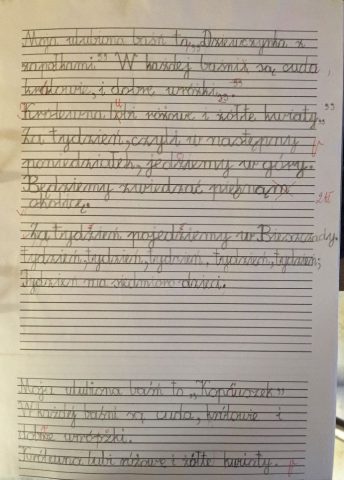 Moja ulubiona baśń to „Dziewczynka z
zapałkami" W każdej baśni są cuda,
królowie, i dobre wróżki.
Królewna lubi różowe i żółte kwiaty.
Za tydzień, czyli w następny
poniedziałek, jedziemy w góry.
Będziemy zwiedzać piękną
okolicę.
Za tydzień pojedziemy w Bieszczady.
tydzień, tydzień, tydzień, tydzień, tydzień,
Tydzień ma siedmioro dzieci.
Moja ulubiona baśń to „Kopciuszek"
W każdej baśni są cuda, królowie i
dobre wróżki.
Królewna lubi różowe i żółte kwiaty.